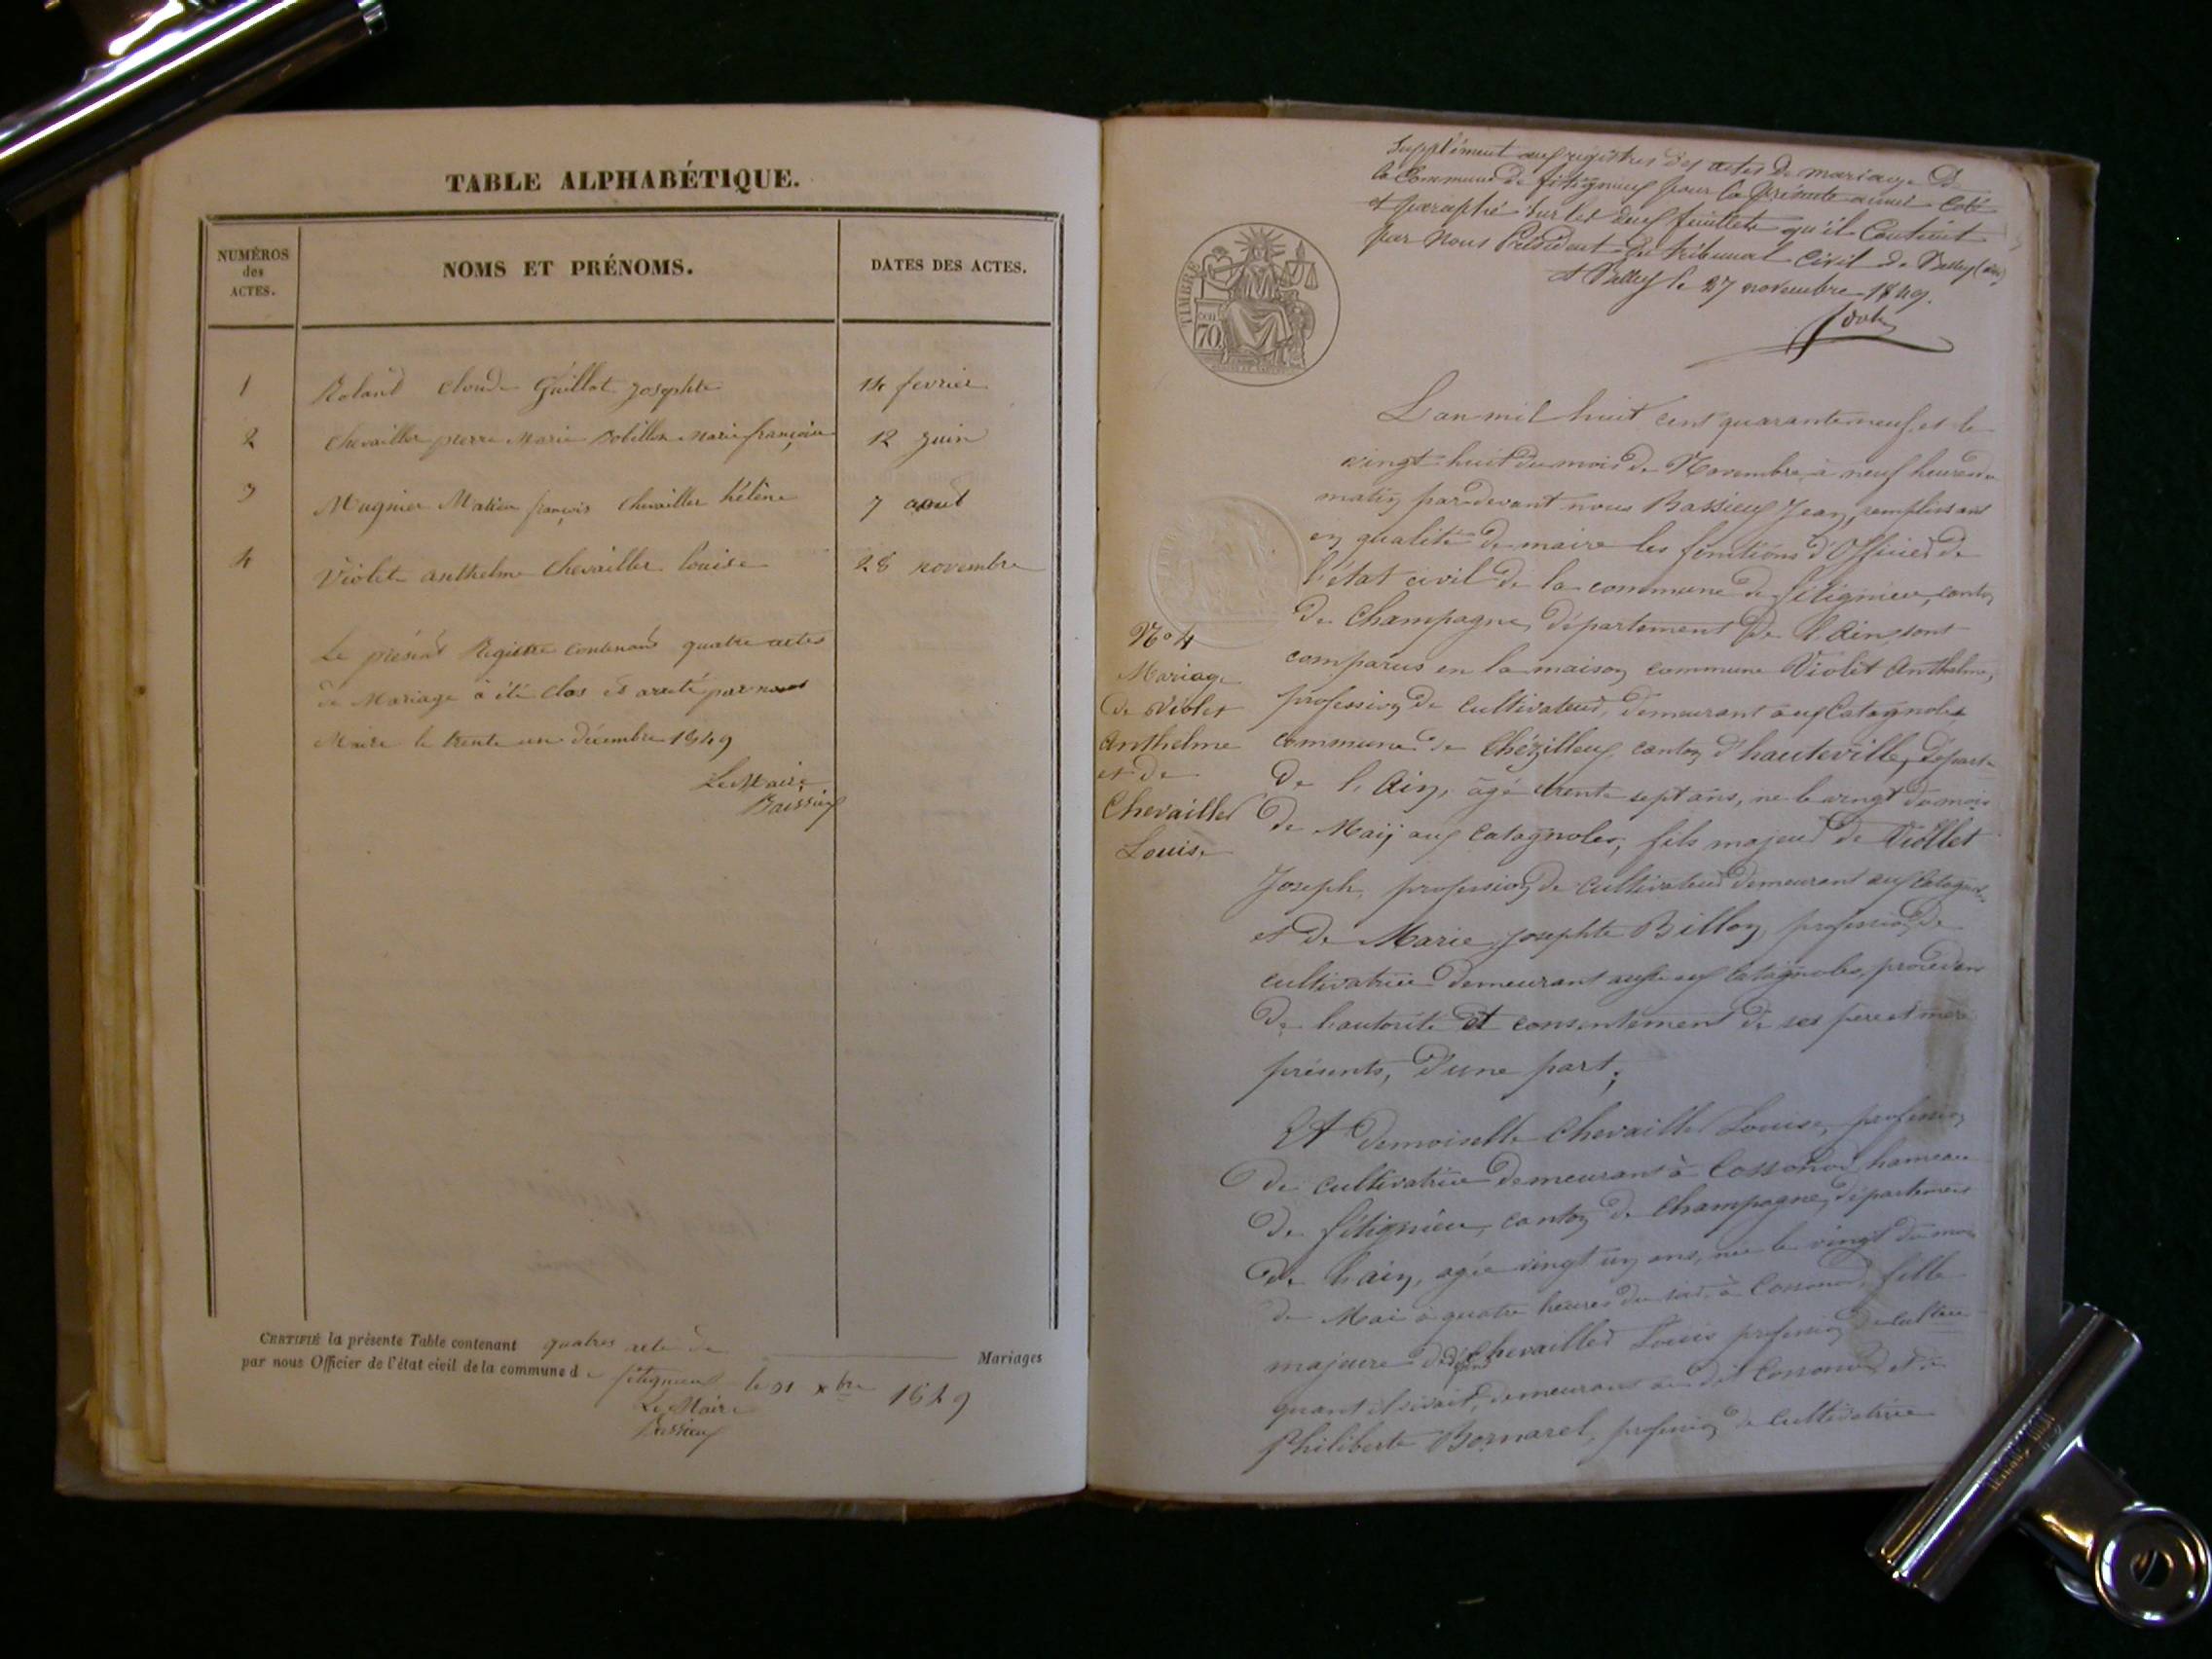 TABLE ALPHABÉTIQUE.
NUMÉROS
des
ACTES.
NOMS ET PRÉNOMS.
DATES DES ACTES.
1 Roland Claude Guillot Josephte 14 fevrier
2 Chevailler pierre Marie Bobillon Marie françoise 12 juin
3 Mugnier Matieu françois Chevailler hélène 7 aout
4 Violet anthelme Chevailler Louise 28 novembre
Le présent Registre contenant quatre actes
de Mariage a été clos et arreté par nous
Maire le trente un décembre 1849
Le Maire
Bassieux
CERTIFIÉ la présente Table contenant quatres actes de Mariages
par nous Officier de l'état civil de la commune de fitignieux le 31 xbre 1849
Le Maire
Bassieux
Supplément aux registres des actes de mariage de
la Commune de fitignieux pour la présente année coté
et paraphé sur les deux feuillets qu'il Contient
par Nous Président du tribunal Civil de Belley (ain)
A Belley le 27 novembre 1849.
TIMBRE
70
L'an mil huit cent quarante neuf et le
vingt huit du mois de Novembre à neuf heures du
matin par devant nous Bassieux Jean, remplissant
en qualité de maire les fonctions d'Officier de
l'état civil de la commune de fitignieu, canton
de Champagne, département de l'Ain, sont
comparus en la maison commune Violet Anthelme,
profession de cultivateur, demeurant aux Catagnoles
commune de Chézilleux canton d'hauteville, départ.
de l'Ain, âgé trente sept ans, né le vingt du mois
de Maij aux Catagnoles, fils majeur de Viollet
Joseph, profession de cultivateur demeurant aux Catagnoles
et de Marie Josephte Billon profession de
cultivatrice demeurant aussi aux Catagnoles, procédant
de l'autorité et consentement de ses père et mère
présents, d'une part;
Et demoiselle Chevailler Louise, profession
de cultivatrice demeurant à Cossonod, hameau
de fitignieu, canton de Champagne, département
de l'ain, agée vingt un ans, née le vingt du mois
de Mai à quatre heures du soir, à Cossonod, fille
majeure de défunt Chevailler Louis profession de cultiva
quant il vivait, demeurant au dit Cossonod et de
Philiberte Bornarel, profession de cultivatrice
N° 4
Mariage
de Violet
Anthelme
et de
Chevailler
Louise